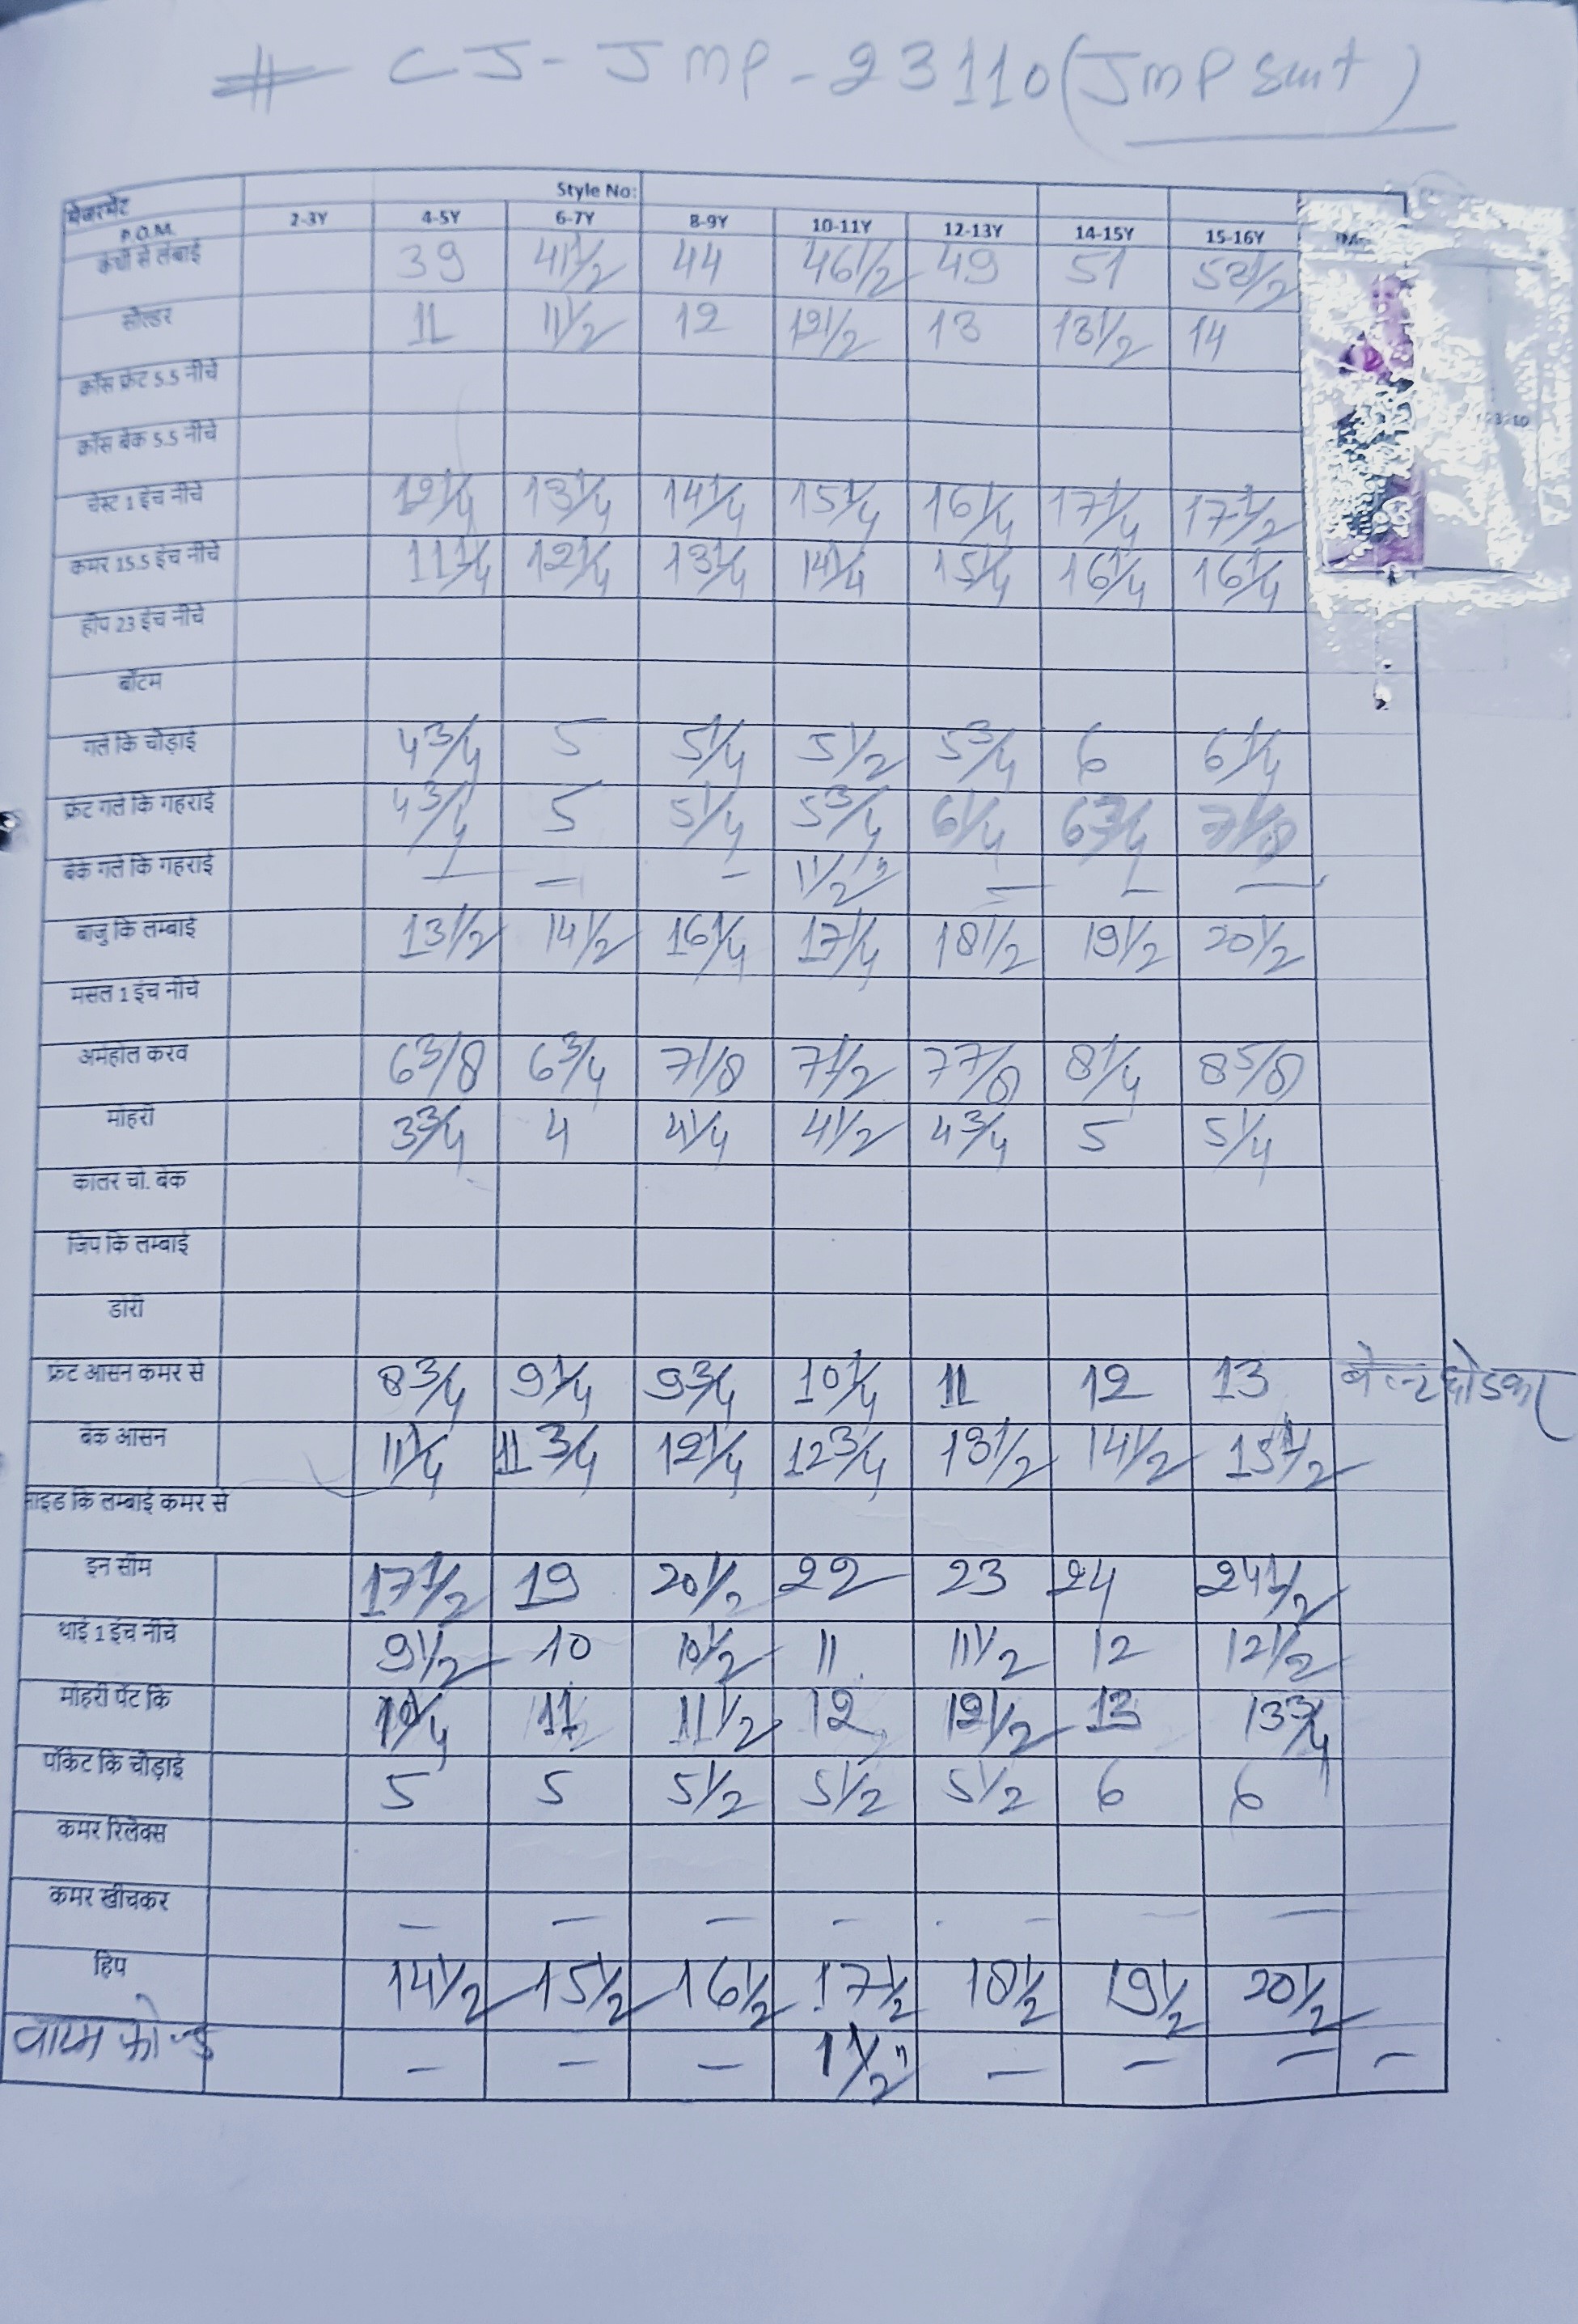 # CJ-JMP-23110 (JMP Suit)
मेजरमेंट Style No:
P.O.M. 2-3Y 4-5Y 6-7Y 8-9Y 10-11Y 12-13Y 14-15Y 15-16Y
कंधों से लंबाई 39 41 1/2 44 46 1/2 49 51 52 1/2
सोल्डर 11 11 1/2 12 12 1/2 13 13 1/2 14
क्रॉस फ्रंट 5.5 नीचे
क्रॉस बेक 5.5 नीचे
चेस्ट 1 इंच नीचे 12 1/4 13 1/4 14 1/4 15 1/4 16 1/4 17 1/4 17 1/2
कमर 15.5 इंच नीचे 11 1/4 12 1/4 13 1/4 14 1/4 15 1/4 16 1/4 16 1/4
हीप 23 इंच नीचे
बॉटम
गले कि चौड़ाई 4 3/4 5 5 1/4 5 1/2 5 3/4 6 6 1/4
फ्रंट गले कि गहराई 4 3/4 5 5 1/4 5 3/4 6 1/4 6 3/4 7 1/8
बेक गले कि गहराई — — — 1 1/2" — — —
बाजु कि लम्बाई 13 1/2 14 1/2 16 1/4 17 1/4 18 1/2 19 1/2 20 1/2
मसल 1 इंच नीचे
अर्महोल करव 6 3/8 6 3/4 7 1/8 7 1/2 7 7/8 8 1/4 8 5/8
मोहरी 3 3/4 4 4 1/4 4 1/2 4 3/4 5 5 1/4
कालर चो. बेक
जिप कि लम्बाई
डोरी
फ्रंट आसन कमर से 8 3/4 9 1/4 9 3/4 10 1/4 11 12 13 बेल्ट छोडकर
बेक आसन 11 1/4 11 3/4 12 1/4 12 3/4 13 1/2 14 1/2 15 1/2
साइड कि लम्बाई कमर से
इन सीम 17 1/2 19 20 1/2 22 23 24 24 1/2
थाई 1 इंच नीचे 9 1/2 10 10 1/2 11 11 1/2 12 12 1/2
मोहरी पेंट कि 11 11 1/2 12 12 1/2 13 13 3/4
पॉकेट कि चौड़ाई 5 5 5 1/2 5 1/2 5 1/2 6 6
कमर रिलेक्स
कमर खीचकर — — — — — — —
हिप 14 1/2 15 1/2 16 1/2 17 1/2 18 1/2 19 1/2 20 1/2
वाटम फोल्ड — — — 1 1/2" — — — —